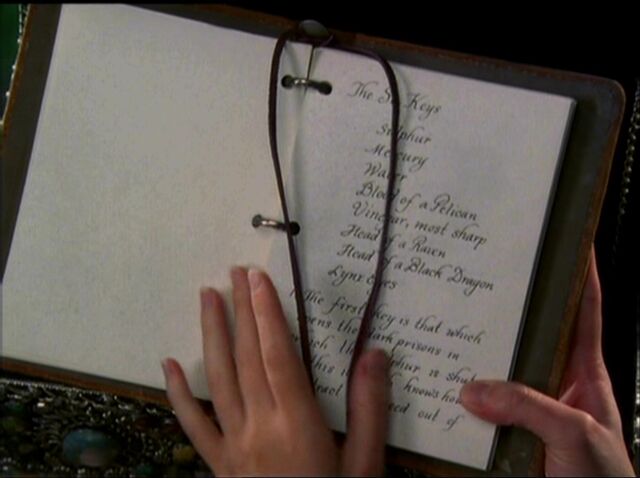 The Six Keys
Sulphur
Mercury
Water
Blood of a Pelican
Vinegar, most sharp
Head of a Raven
Head of a Black Dragon
Lynx Eyes
The first key is that which
opens the dark prisons in
which the Sulphur is shut
this is knows how
out of